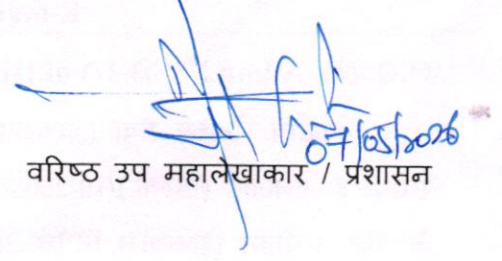 07/05/2026
वरिष्ठ उप महालेखाकार / प्रशासन